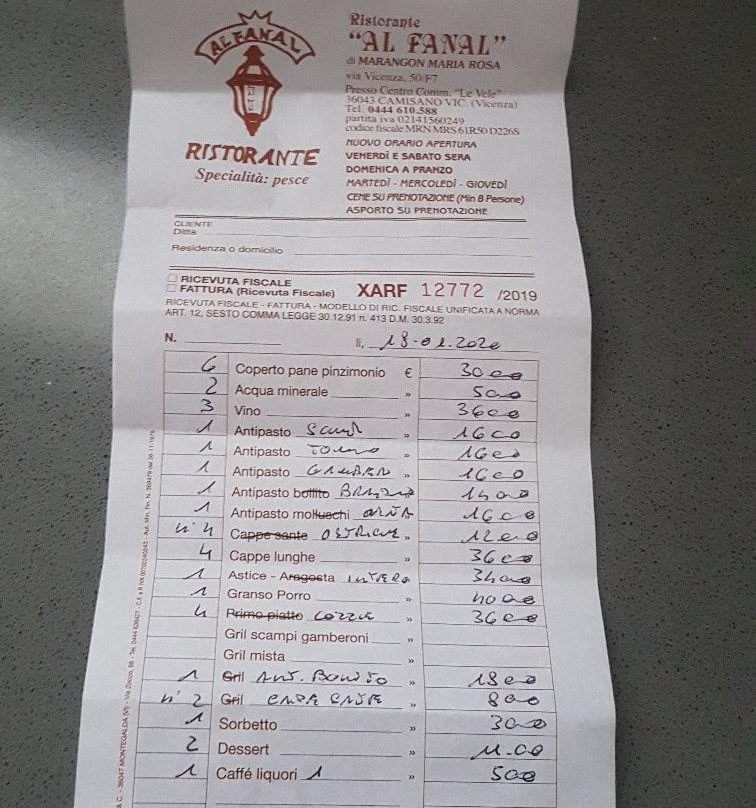 AL FANAL
RISTORANTE
Specialità: pesce
Ristorante
"AL FANAL"
di MARANGON MARIA ROSA
via Vicenza, 50/F7
Presso Centro Comm. "Le Vele"
36043 CAMISANO VIC. (Vicenza)
Tel. 0444 610.588
partita iva 02141560249
codice fiscale MRN MRS 61R50 D226S
NUOVO ORARIO APERTURA
VENERDÌ E SABATO SERA
DOMENICA A PRANZO
MARTEDÌ - MERCOLEDÌ - GIOVEDÌ
CENE SU PRENOTAZIONE (Min 8 Persone)
ASPORTO SU PRENOTAZIONE
CLIENTE
Ditta
Residenza o domicilio
RICEVUTA FISCALE
FATTURA (Ricevuta Fiscale) XARF 12772 /2019
RICEVUTA FISCALE - FATTURA - MODELLO DI RIC. FISCALE UNIFICATA A NORMA
ART. 12, SESTO COMMA LEGGE 30.12.91 n. 413 D.M. 30.3.92
N. lì, 18-01.2020
6 Coperto pane pinzimonio € 30 00
2 Acqua minerale » 5 00
3 Vino » 36 00
1 Antipasto » 16 00
1 Antipasto » 16 00
1 Antipasto » 16 00
1 Antipasto bollito » 14 00
1 Antipasto molluschi » 16 00
n° 4 Cappe sante OSTRICHE » 12 00
4 Cappe lunghe » 36 00
1 Astice - Aragosta INTERO 34 00
1 Granso Porro » 40 00
4 Primo piatto COZZE » 36 00
Gril scampi gamberoni »
Gril mista »
1 Gril ANT. » 18 00
n° 2 Gril » 8 00
1 Sorbetto » 3 00
2 Dessert » 11.00
1 Caffé liquori 1 » 5 00